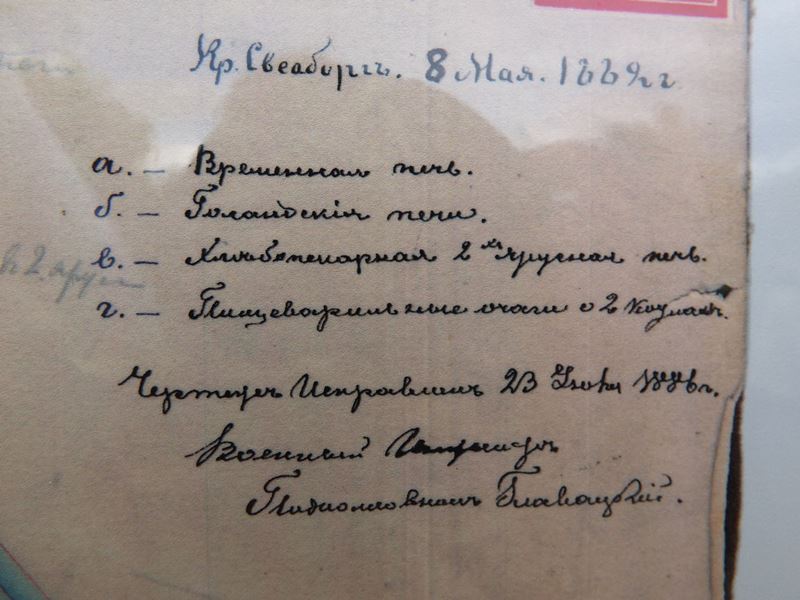 Кр. Свеаборгъ. 8 Мая. 1889 г
а. – Временная печь.
б. – Голандскія печи.
в. – Хлѣбопекарная 2хъ ярусная печь.
г. – Пищеварильные очаги о 2 котлахъ.
Чертежъ Исправилъ 23 1886 г.
Военный Инженеръ
Подполковникъ Главацкій.